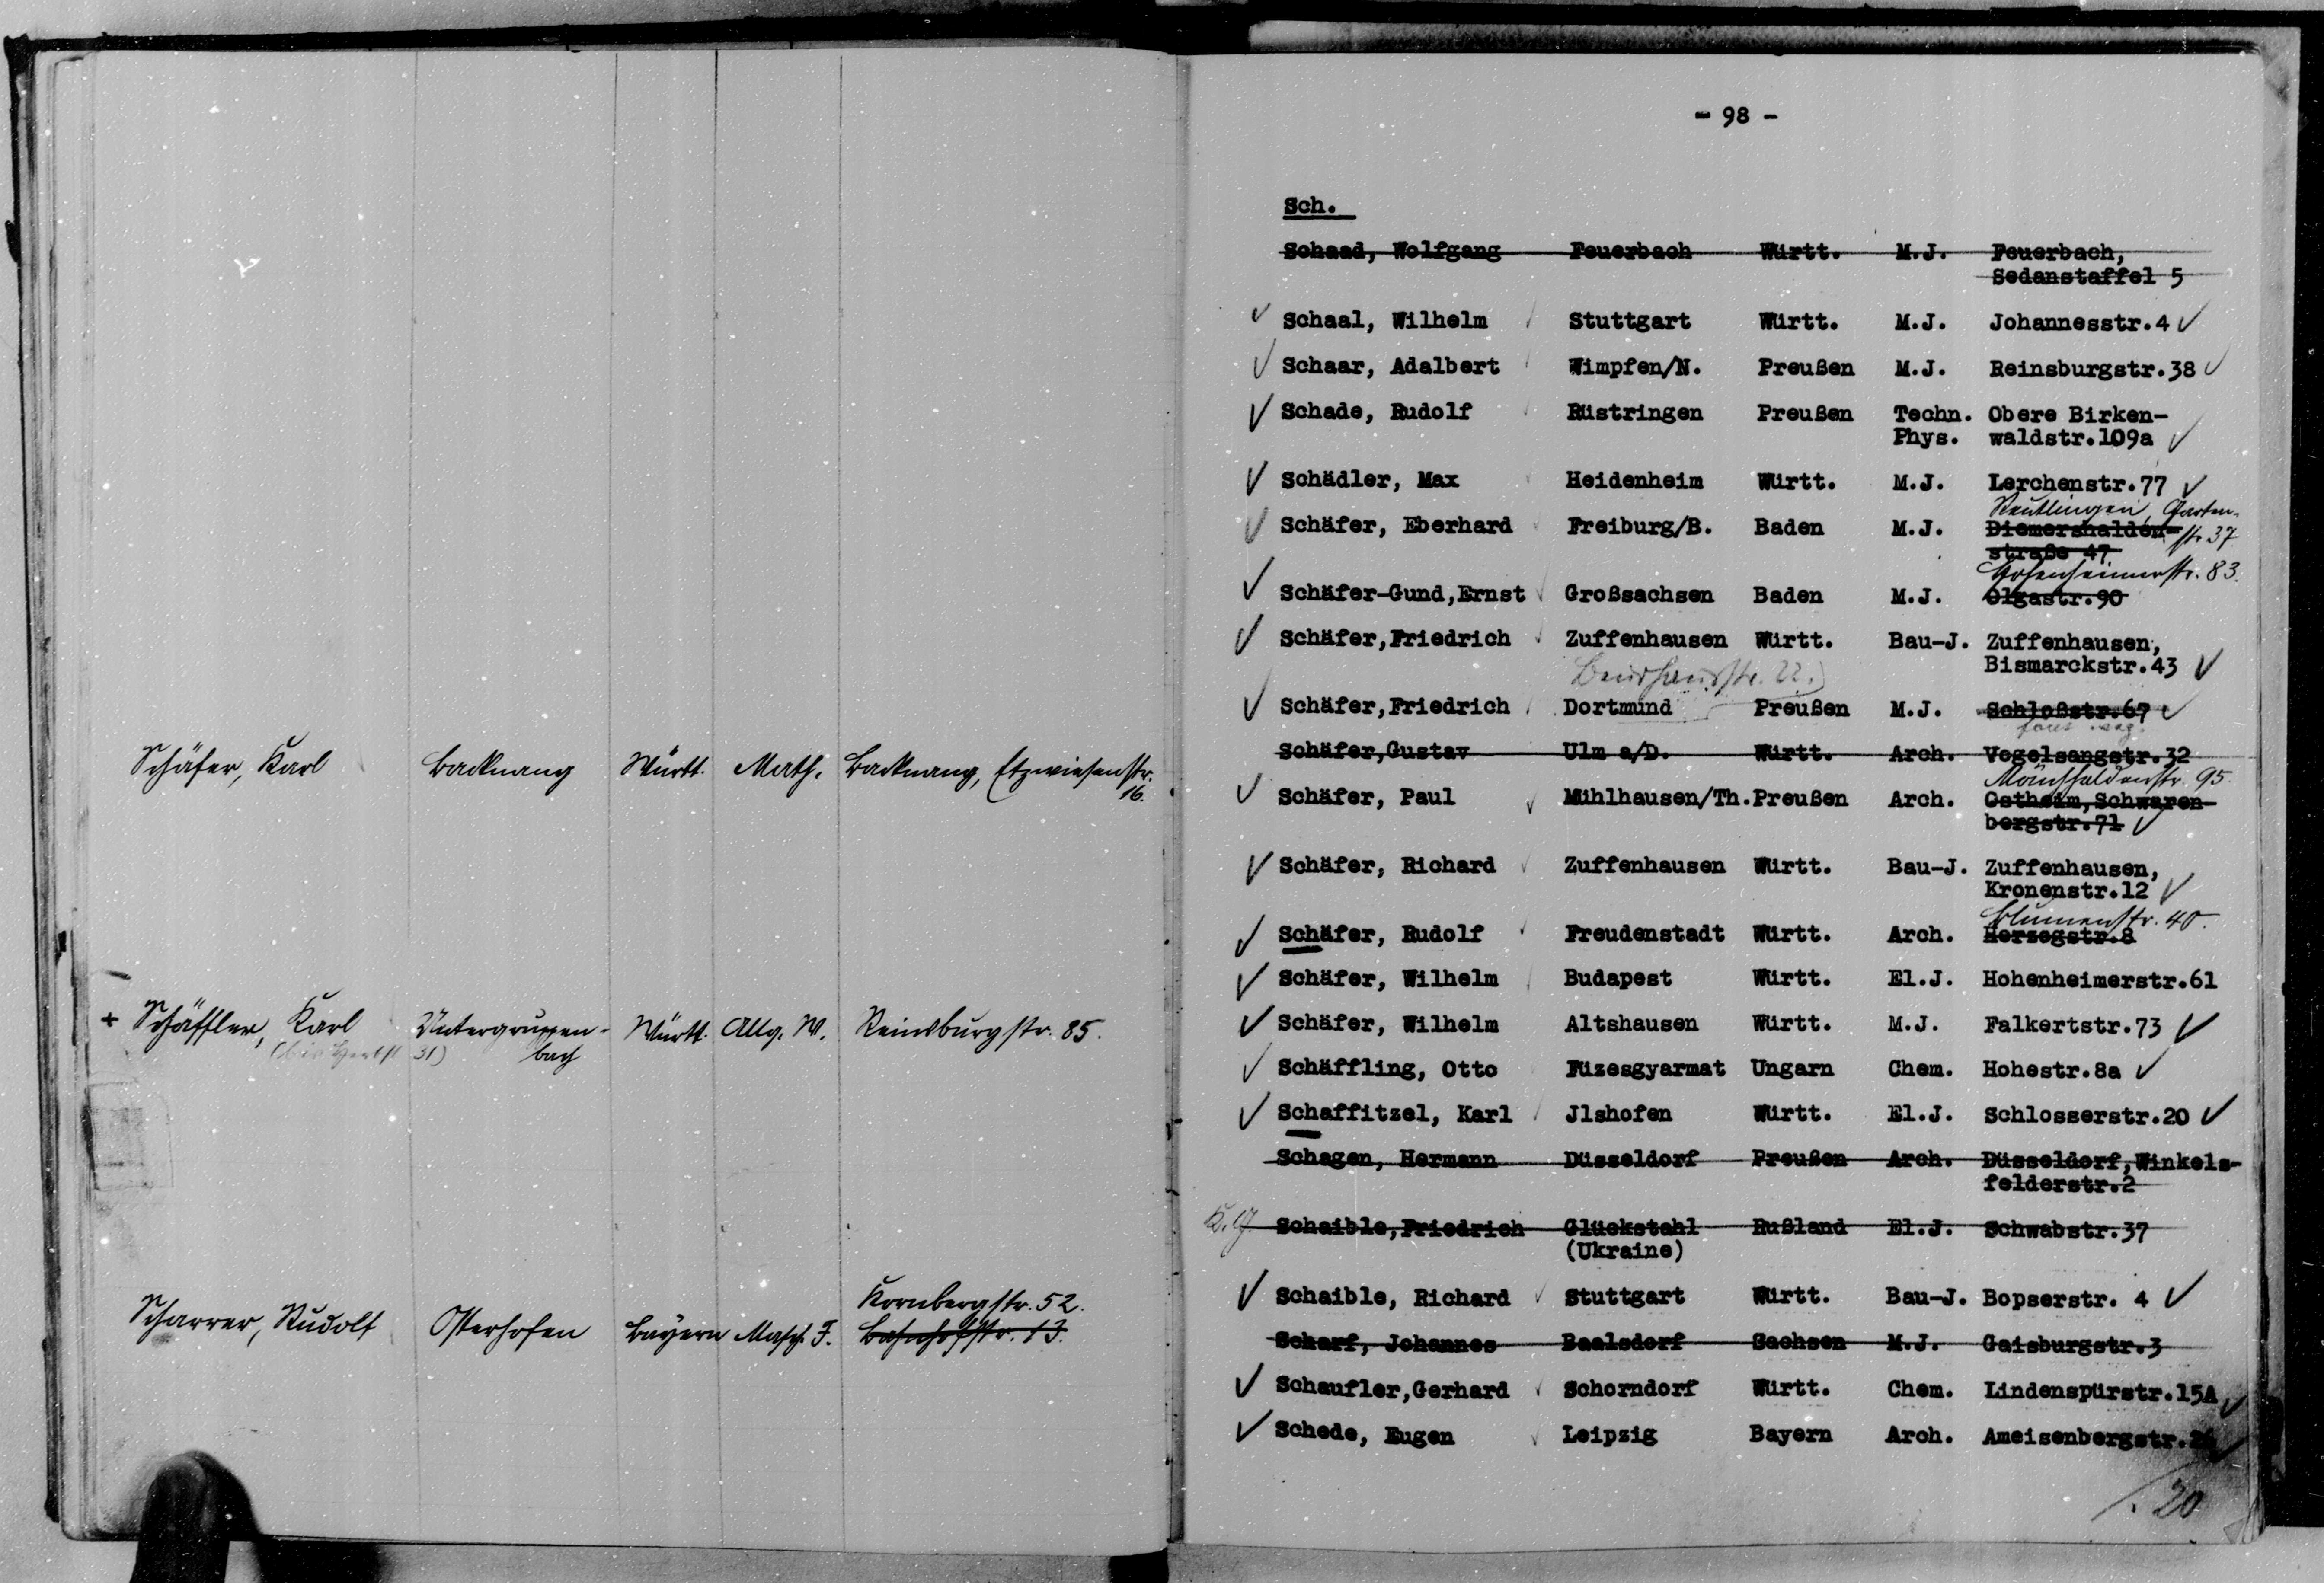 Schäfer, Karl Backnang Württ. Math. Backnang, Etzwiesenstr.
16.
+ Schäffler, Karl Untergruppen- Württ. Allg. W. Reinsburgstr. 85.
(bis Herbst 31) bach
Kornbergstr. 52.
Scharrer, Rudolf Osterhofen Bayern Masch. J. Bahnhofstr. 13.
- 98 -
Sch.
Schaad, Wolfgang Feuerbach Württ. M.J. Feuerbach,
Sedanstaffel 5
Schaal, Wilhelm Stuttgart Württ. M.J. Johannesstr.4
Schaar, Adalbert Wimpfen/N. Preußen M.J. Reinsburgstr.38
Schade, Rudolf Rüstringen Preußen Techn. Obere Birken-
Phys. waldstr.109a
Schädler, Max Heidenheim Württ. M.J. Lerchenstr.77
Reutlingen, Garten-
Schäfer, Eberhard Freiburg/B. Baden M.J. Diemershalden- str. 37
straße 47
Hohenheimerstr. 83.
Schäfer-Gund,Ernst Großsachsen Baden M.J. Olgastr.90
Schäfer,Friedrich Zuffenhausen Württ. Bau-J. Zuffenhausen,
Bismarckstr.43
str. 22.
Schäfer,Friedrich Dortmund Preußen M.J. Schloßstr.67
Schäfer,Gustav Ulm a/D. Württ. Arch. Vogelsangstr.32
Mönchhaldenstr. 95
Schäfer, Paul Mühlhausen/Th. Preußen Arch. Ostheim,Schwaren-
bergstr.71
Schäfer, Richard Zuffenhausen Württ. Bau-J. Zuffenhausen,
Kronenstr.12
Blumenstr. 40.
Schäfer, Rudolf Freudenstadt Württ. Arch. Herzogstr.8
Schäfer, Wilhelm Budapest Württ. El.J. Hohenheimerstr.61
Schäfer, Wilhelm Altshausen Württ. M.J. Falkertstr.73
Schäffling, Otto Füzesgyarmat Ungarn Chem. Hohestr.8a
Schaffitzel, Karl Jlshofen Württ. El.J. Schlosserstr.20
Schagen, Hermann Düsseldorf Preußen Arch. Düsseldorf,Winkels-
felderstr.2
Schaible,Friedrich Glückstahl Rußland El.J. Schwabstr.37
(Ukraine)
Schaible, Richard Stuttgart Württ. Bau-J. Bopserstr. 4
Scharf, Johannes Baalsdorf Sachsen M.J. Gaisburgstr.3
Schaufler,Gerhard Schorndorf Württ. Chem. Lindenspürstr.15A
Schede, Eugen Leipzig Bayern Arch. Ameisenbergstr.
20